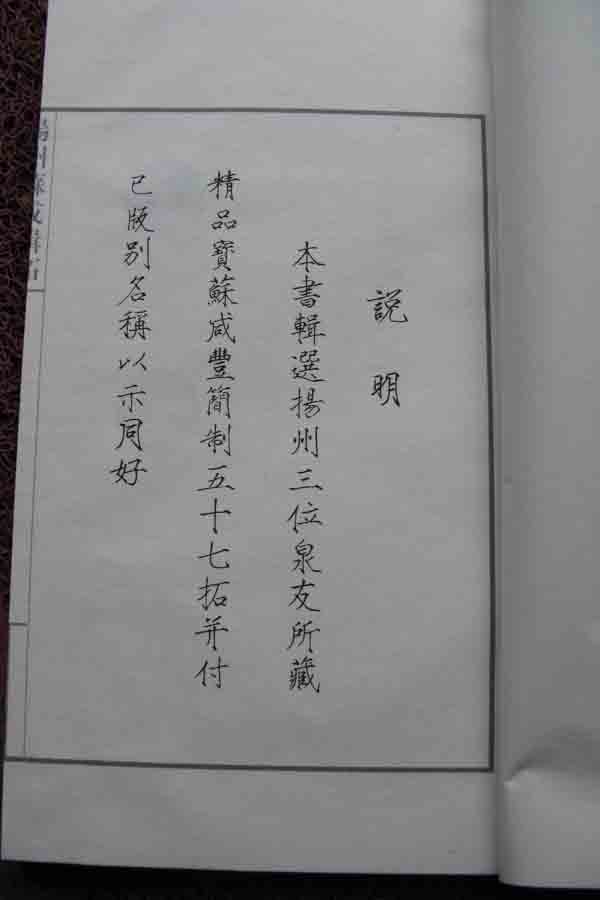 説明
本書輯選揚州三位泉友所藏
精品寶蘇咸豐簡制五十七拓并付
已版别名稱以示同好